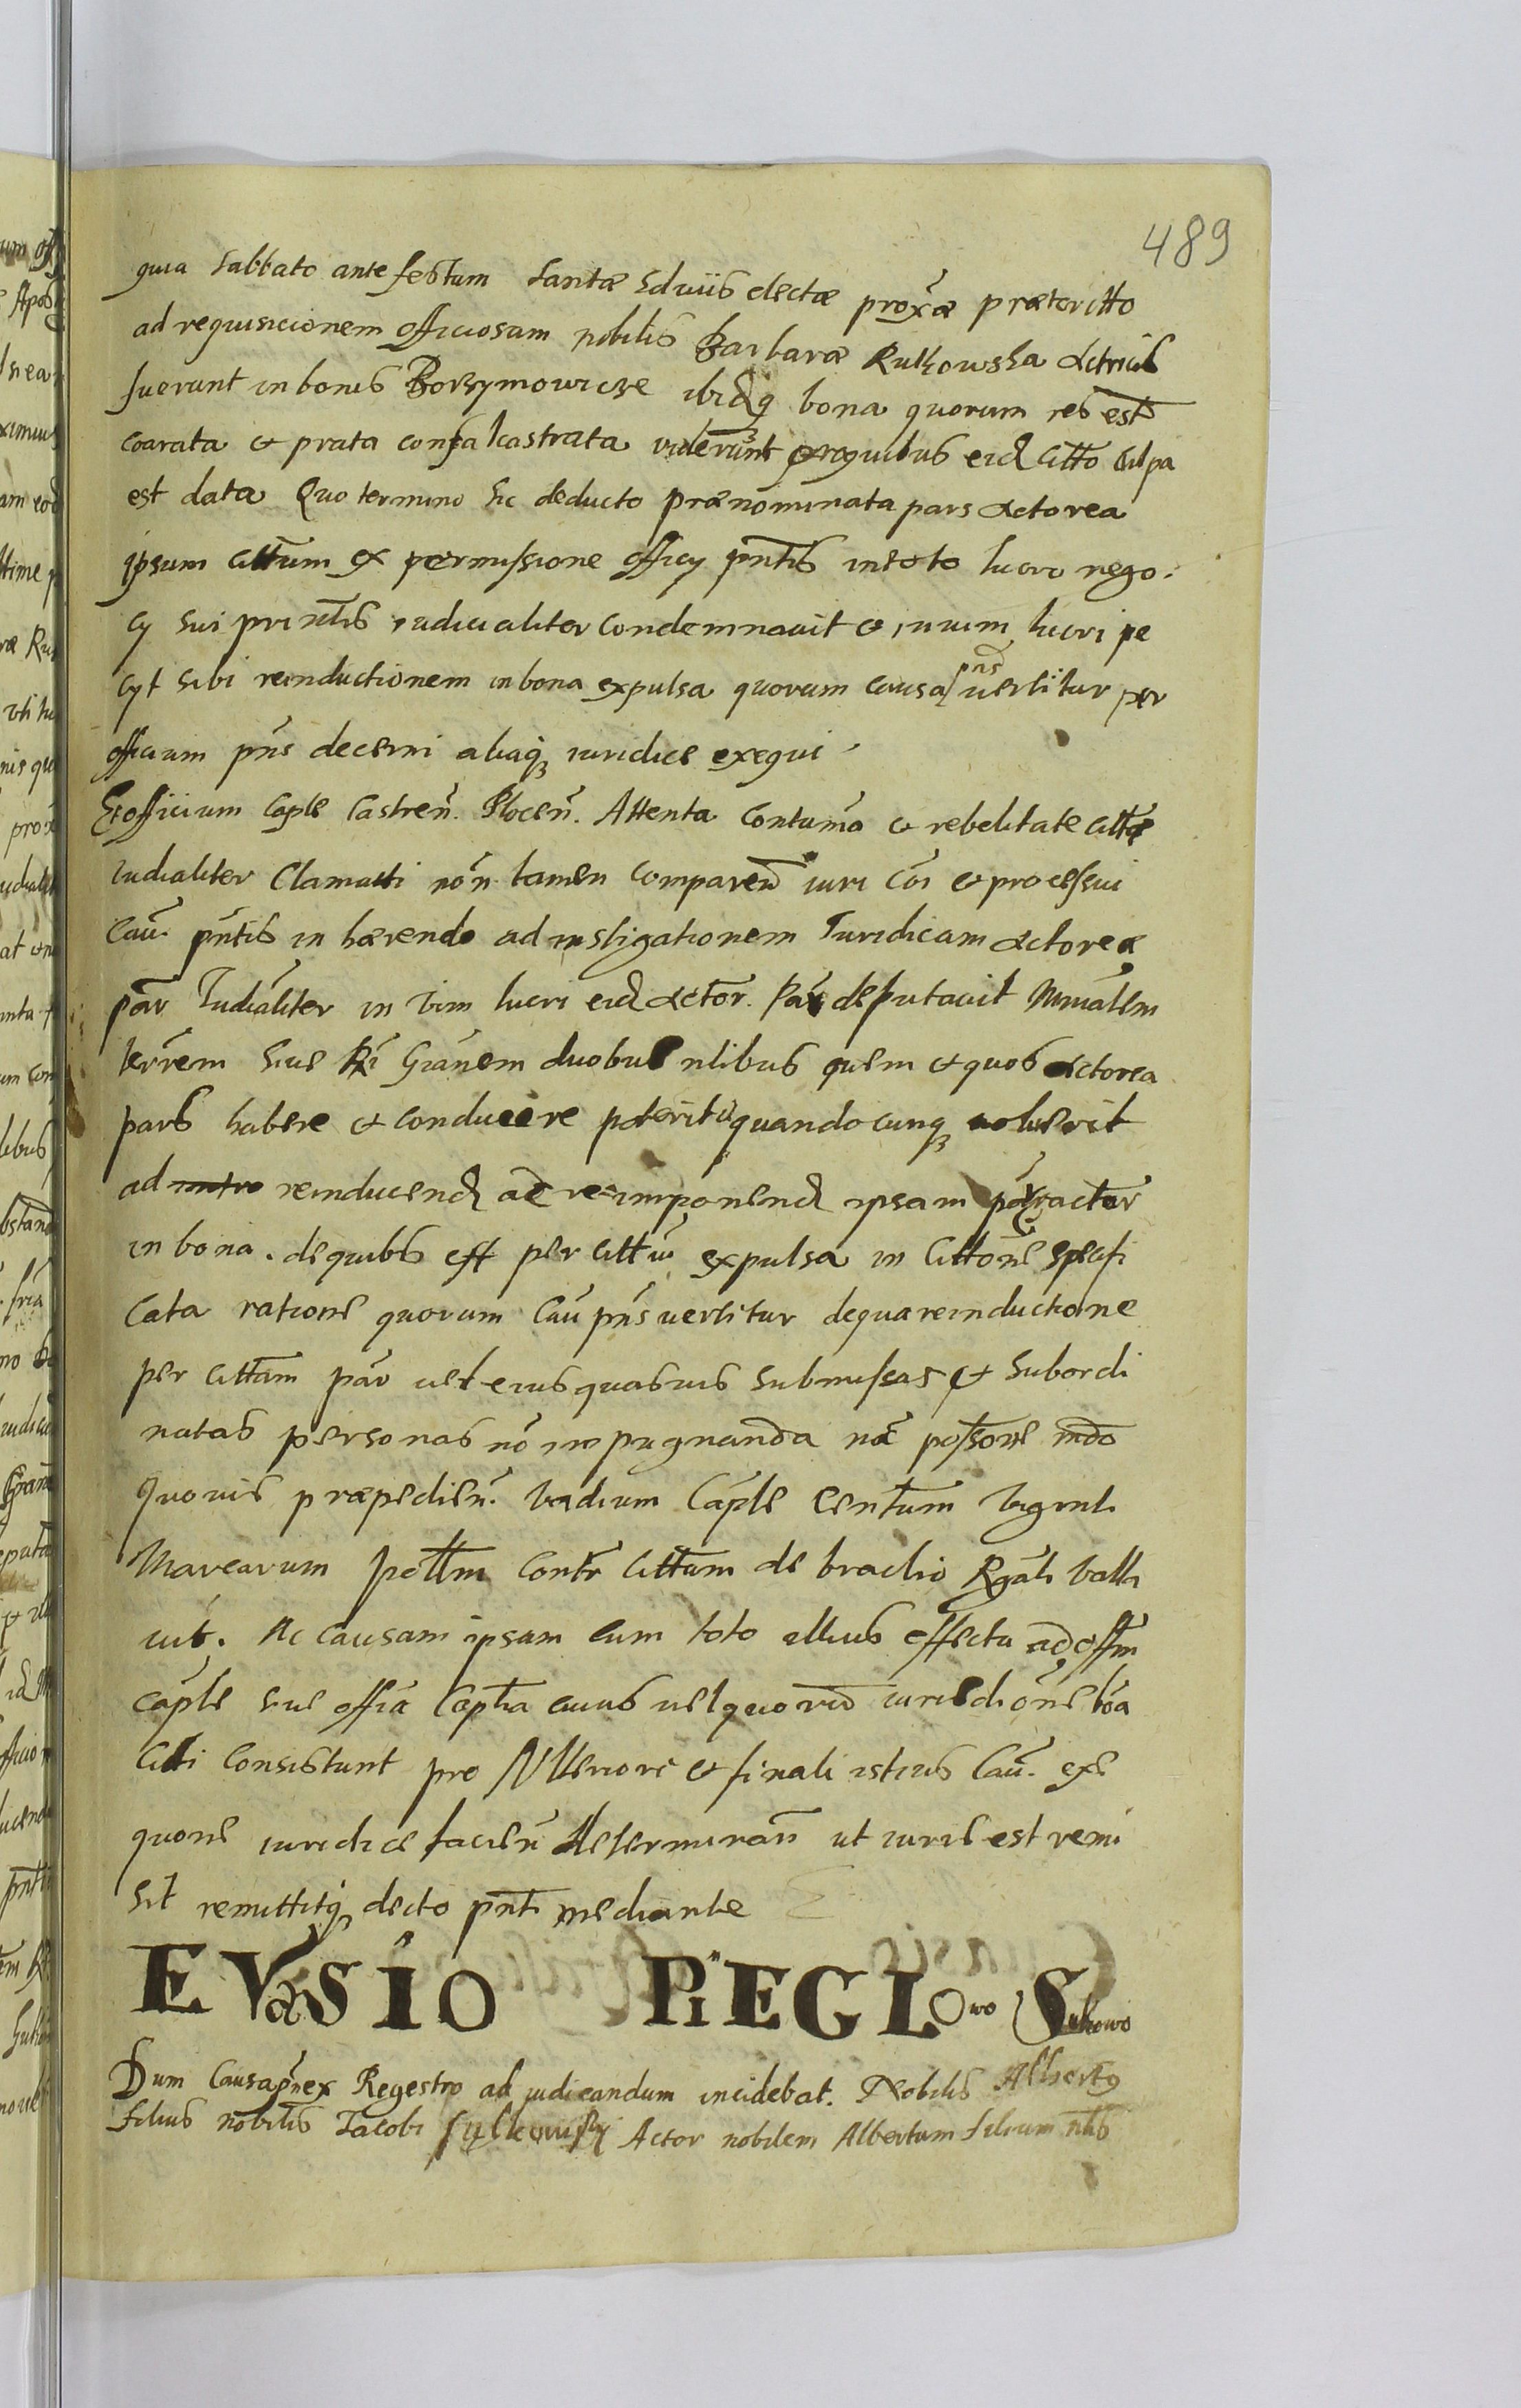 489
quia Sabbato ante festum Sanctæ Heduiis electæ proxæ præteritto
ad requisicionem officiosam nobilis Barbaræ Rutkowska Actricis
fuerunt in bonis Borzymowicze ibidq bona quorum res est
coarata et prata confalcastrata viderunt pro quibus eid citto culpa
est data Quo termino sic deducto prænominata pars Actorea
ipsum cittum ex permissione officy pntis in toto lucro nego
cy sui printis iudicialiter condemnavit et in vim lucri pe
cyt sibi reinductionem in bona expulsa quorum causa pns vertitur per
officium pns decerni aliaq iuridice exequi
Et officium Caple Castren. Plocen. Attenta contuma et rebelitate citti
iudialiter clamatti non tamen comparen iuri coi et processui
cau. pntis in hærendo ad instigationem Iuridicam Actoreæ
par Iudialiter in vim lucri eid Actor. Par deputavit Mnialem
terrem siue Ri Granem duobus nlibus quem et quos Actorea
pars habere et conducere poterit quandocunq voluerit
ad intro reinducend ac reimponend ipsam par actor
in bona. de quibus est per cittu expulsa in cittone specifi
cata ratione quorum cau pns vertitur de qua reinductione
per cittam par vel eius quasuis submissas et subordi
natas personas no impugnanda nec possone mdo
quouis præpedien. Vadium Caple Centum viginti
Marcarum pollm contr cittum de brachio Rgali valla
uit. Ac causam ipsam cum toto illius effectu ad offm
caple siue offia Captia cuius vel quoru iurisdione bona
citi consistunt pro Vlteriori et finali istius cau. exe
quone iuridice facien determinan ut iuris est remi
sit remittitq decto pnti mediante
EVASIO PIEGLOwo Sulkowo
Dum Causa pns ex Regestro ad iudicandum incidebat. Nobilis Albertq
filius nobilis Iacobi Sulkowski Actor nobilem Albertum filium nlis